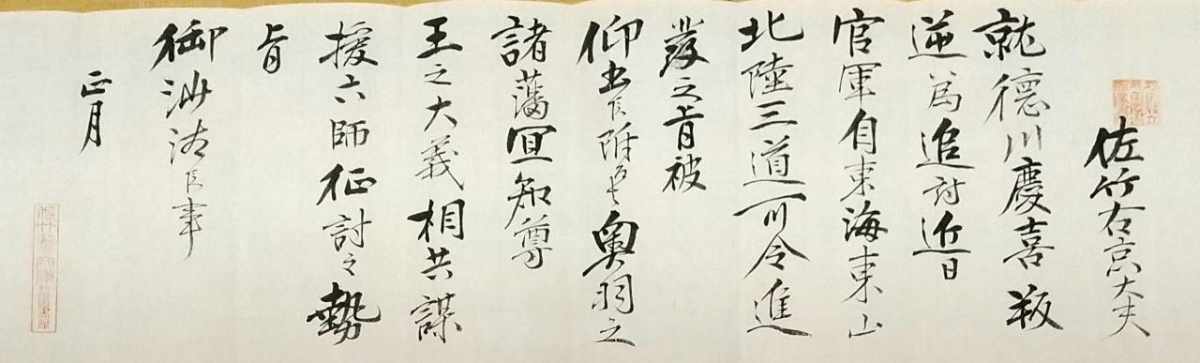 佐竹右京大夫
就徳川慶喜叛
逆為追討近日
官軍自東海東山
北陸三道可令進
發之旨被
仰出候附而者奥羽之
諸藩宜知尊
王之大義相共謀
援六師征討之勢
旨
御沙汰候事
正月